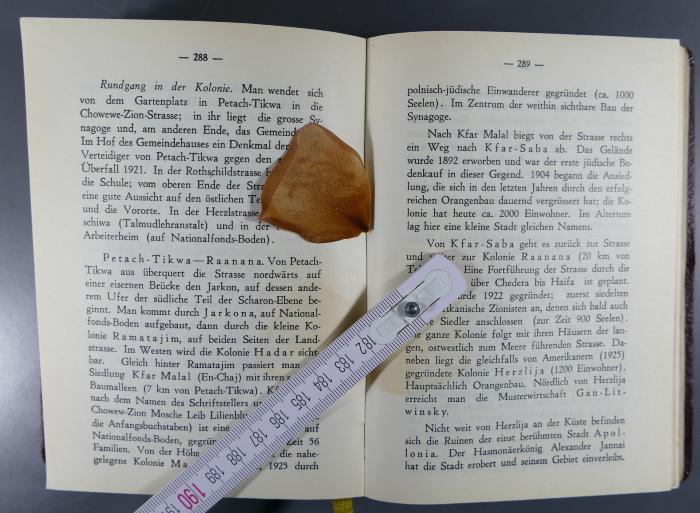 — 288 —
Rundgang in der Kolonie. Man wendet sich
von dem Gartenplatz in Petach-Tikwa in die
Chowewe-Zion-Strasse; in ihr liegt die grosse Sy-
nagoge und, am anderen Ende, das Gemeind
Im Hof des Gemeindehauses ein Denkmal der
Verteidiger von Petach-Tikwa gegen den
Überfall 1921. In der Rothschildstrasse
die Schule; vom oberen Ende der Stra
eine gute Aussicht auf den östlichen Te
und die Vororte. In der Herzlstrasse
schiwa (Talmudlehranstalt) und in der
Arbeiterheim (auf Nationalfonds-Boden).
Petach-Tikwa—Raanana. Von Petach-
Tikwa aus überquert die Strasse nordwärts auf
einer eisernen Brücke den Jarkon, auf dessen ande-
rem Ufer der südliche Teil der Scharon-Ebene be-
ginnt. Man kommt durch Jarkona, auf National-
fonds-Boden aufgebaut, dann durch die kleine Ko-
lonie Ramatajim, auf beiden Seiten der Land-
strasse. Im Westen wird die Kolonie Hadar sicht-
bar. Gleich hinter Ramatajim passiert man
Siedlung Kfar Malal (En-Chaj) mit ihren
Baumalleen (7 km von Petach-Tikwa). K
nach dem Namen des Schriftstellers un
Chowew-Zion Mosche Leib Lilienblu
die Anfangsbuchstaben) ist eine auf
Nationalfonds-Boden, gegrün Zeit 56
Familien. Von der Höhe die nahe-
gelegene Kolonie Ma 1925 durch
— 289 —
polnisch-jüdische Einwanderer gegründet (ca. 1000
Seelen). Im Zentrum der weithin sichtbare Bau der
Synagoge.
Nach Kfar Malal biegt von der Strasse rechts
ein Weg nach Kfar-Saba ab. Das Gelände
wurde 1892 erworben und war der erste jüdische Bo-
denkauf in dieser Gegend. 1904 begann die Ansied-
lung, die sich in den letzten Jahren durch den erfolg-
reichen Orangenbau dauernd vergrössert hat; die Ko-
lonie hat heute ca. 2000 Einwohner. Im Altertum
lag hier eine kleine Stadt gleichen Namens.
Von Kfar-Saba geht es zurück zur Strasse
und zur Kolonie Raanana (20 km von
Eine Fortführung der Strasse durch die
über Chedera bis Haifa ist geplant.
wurde 1922 gegründet; zuerst siedelten
amerikanische Zionisten an, denen sich bald auch
Siedler anschlossen (zur Zeit 900 Seelen).
ganze Kolonie folgt mit ihren Häusern der lan-
gen, ostwestlich zum Meere führenden Strasse. Da-
neben liegt die gleichfalls von Amerikanern (1925)
gegründete Kolonie Herzlija (1200 Einwohner).
Hauptsächlich Orangenbau. Nördlich von Herzlija
erreicht man die Musterwirtschaft Gan-Lit-
winsky.
Nicht weit von Herzlija an der Küste befinden
sich die Ruinen der einst berühmten Stadt Apol-
lonia. Der Hasmonäerkönig Alexander Jannai
hat die Stadt erobert und seinem Gebiet einverleibt.
182 183 184 185 186 187 188 189 190